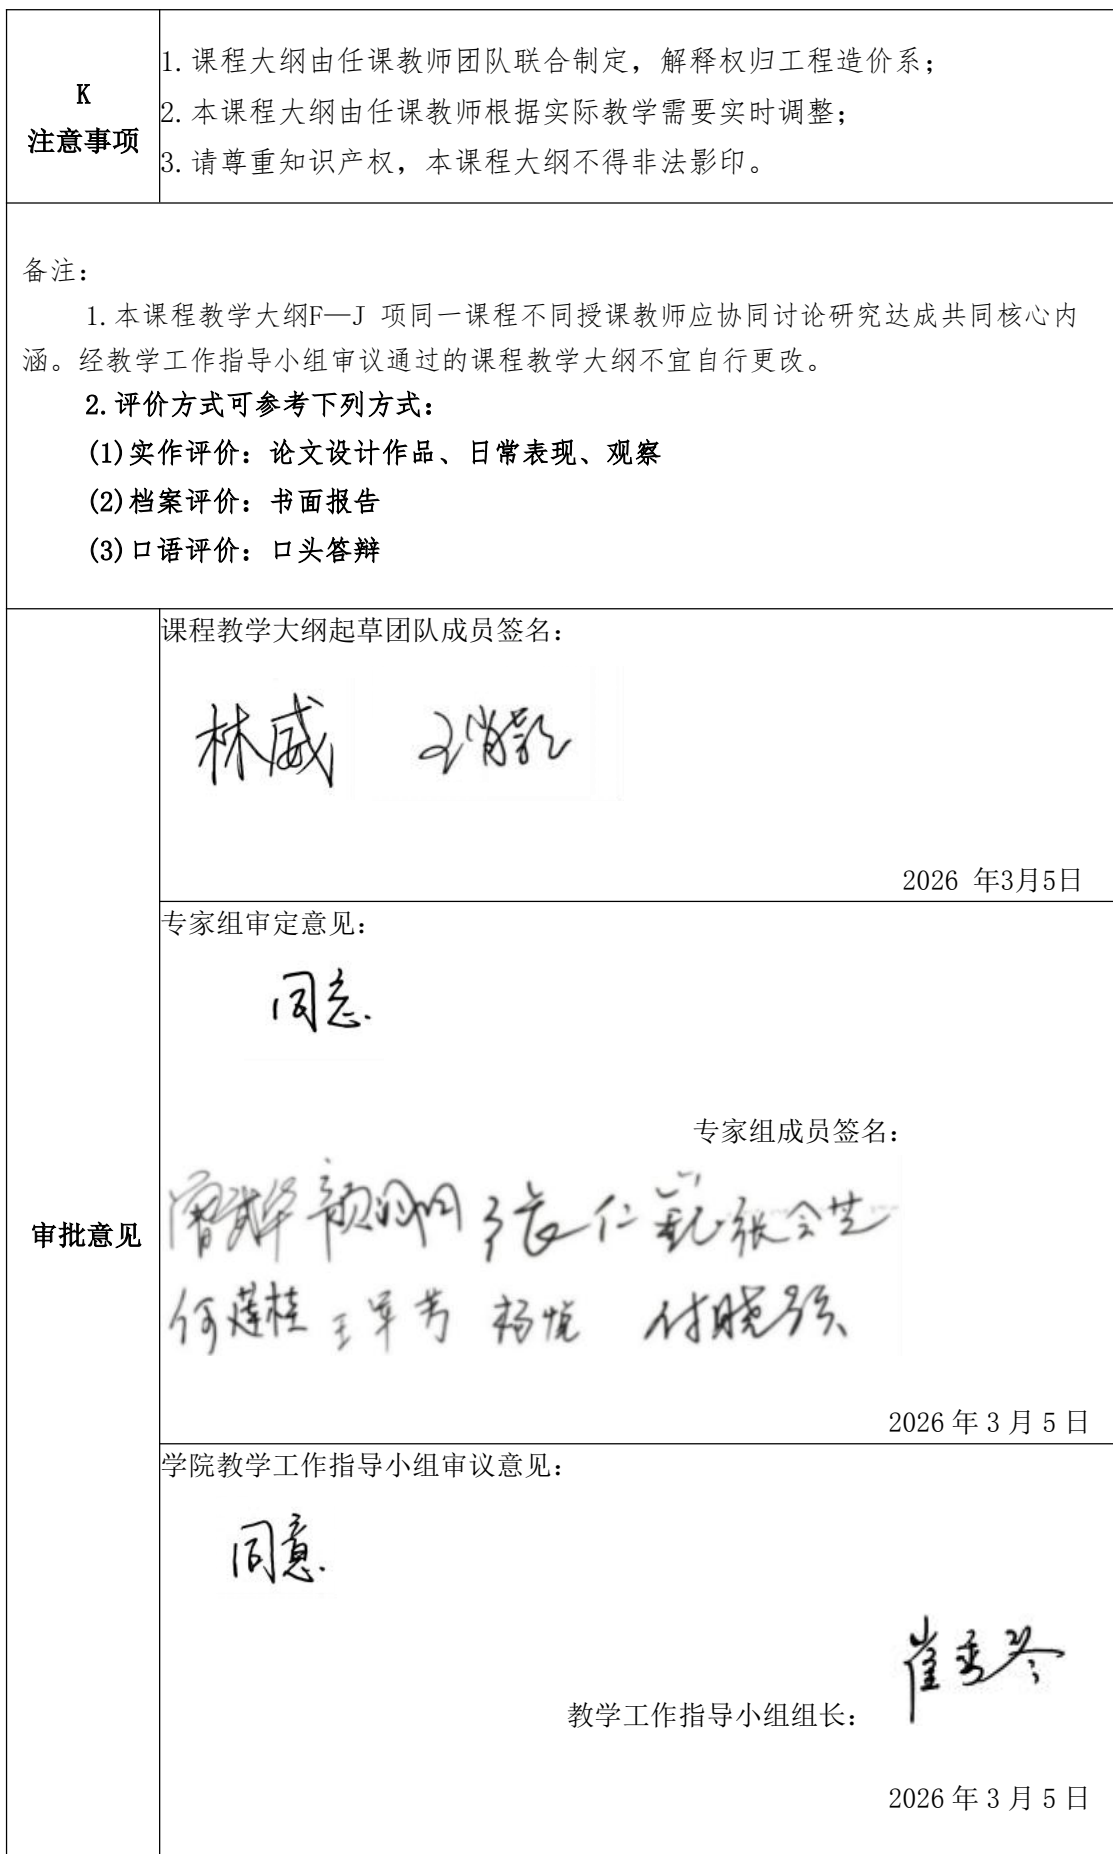 K
注意事项
1.课程大纲由任课教师团队联合制定，解释权归工程造价系；
2.本课程大纲由任课教师根据实际教学需要实时调整；
3.请尊重知识产权，本课程大纲不得非法影印。
备注：
1.本课程教学大纲F—J 项同一课程不同授课教师应协同讨论研究达成共同核心内
涵。经教学工作指导小组审议通过的课程教学大纲不宜自行更改。
2.评价方式可参考下列方式：
(1)实作评价：论文设计作品、日常表现、观察
(2)档案评价：书面报告
(3)口语评价：口头答辩
审批意见
课程教学大纲起草团队成员签名：
林威
2026 年3月5日
专家组审定意见：
同意.
专家组成员签名：
张仁 张会芝
何莲桂 王军芳 杨悦 付晓强
2026 年 3 月 5 日
学院教学工作指导小组审议意见：
同意.
教学工作指导小组组长：
崔秀琴
2026 年 3 月 5 日